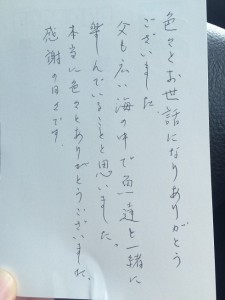 色々とお世話になりありがとう
ございました。
父も広い海の中で魚達と一緒に
遊んでいることと思いました。
本当に色々とありがとうございました。
感謝の日々です。